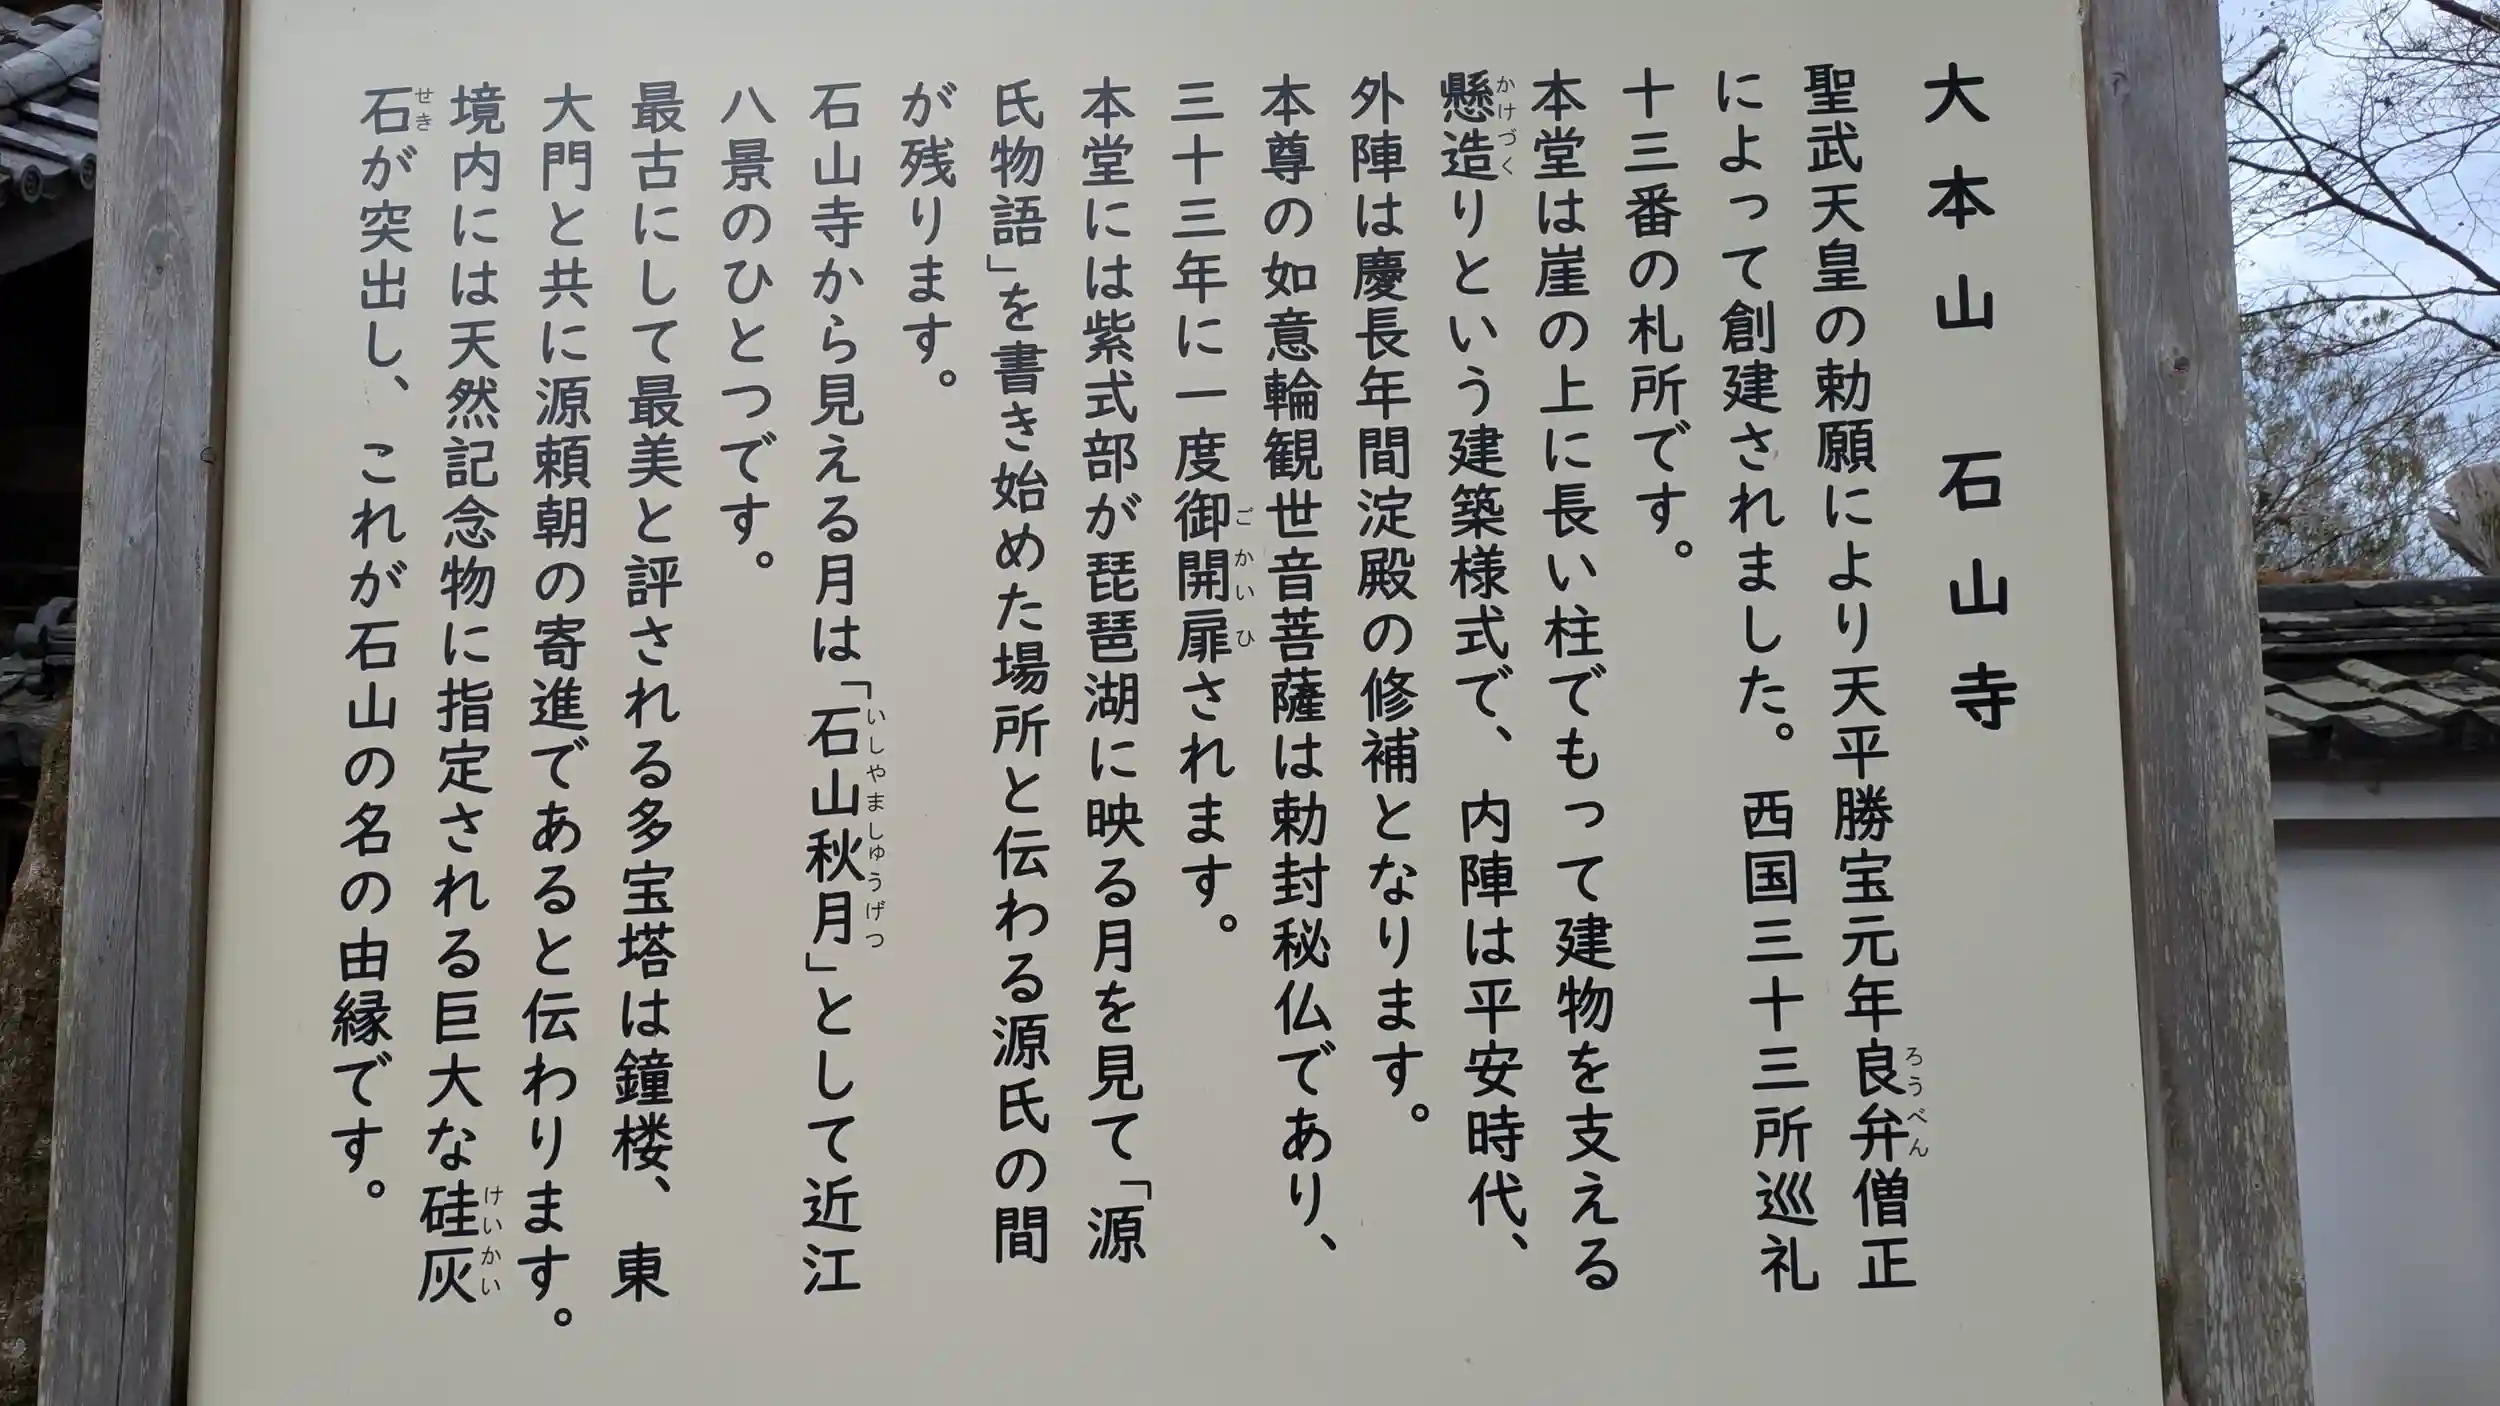 大本山石山寺
聖武天皇の勅願により天平勝宝元年良弁僧正
によって創建されました。西国三十三所巡礼
十三番の札所です。
本堂は崖の上に長い柱でもって建物を支える
懸造りという建築様式で、内陣は平安時代、
外陣は慶長年間淀殿の修補となります。
本尊の如意輪観世音菩薩は勅封秘仏であり、
三十三年に一度御開扉されます。
本堂には紫式部が琵琶湖に映る月を見て「源
氏物語」を書き始めた場所と伝わる源氏の間
が残ります。
石山寺から見える月は「石山秋月」として近江
八景のひとつです。
最古にして最美と評される多宝塔は鐘楼、東
大門と共に源頼朝の寄進であると伝わります。
境内には天然記念物に指定される巨大な硅灰
石が突出し、これが石山の名の由縁です。
ろうべん
かけづく
ごかいひ
いしやましゆうげつ
けいかい
せき